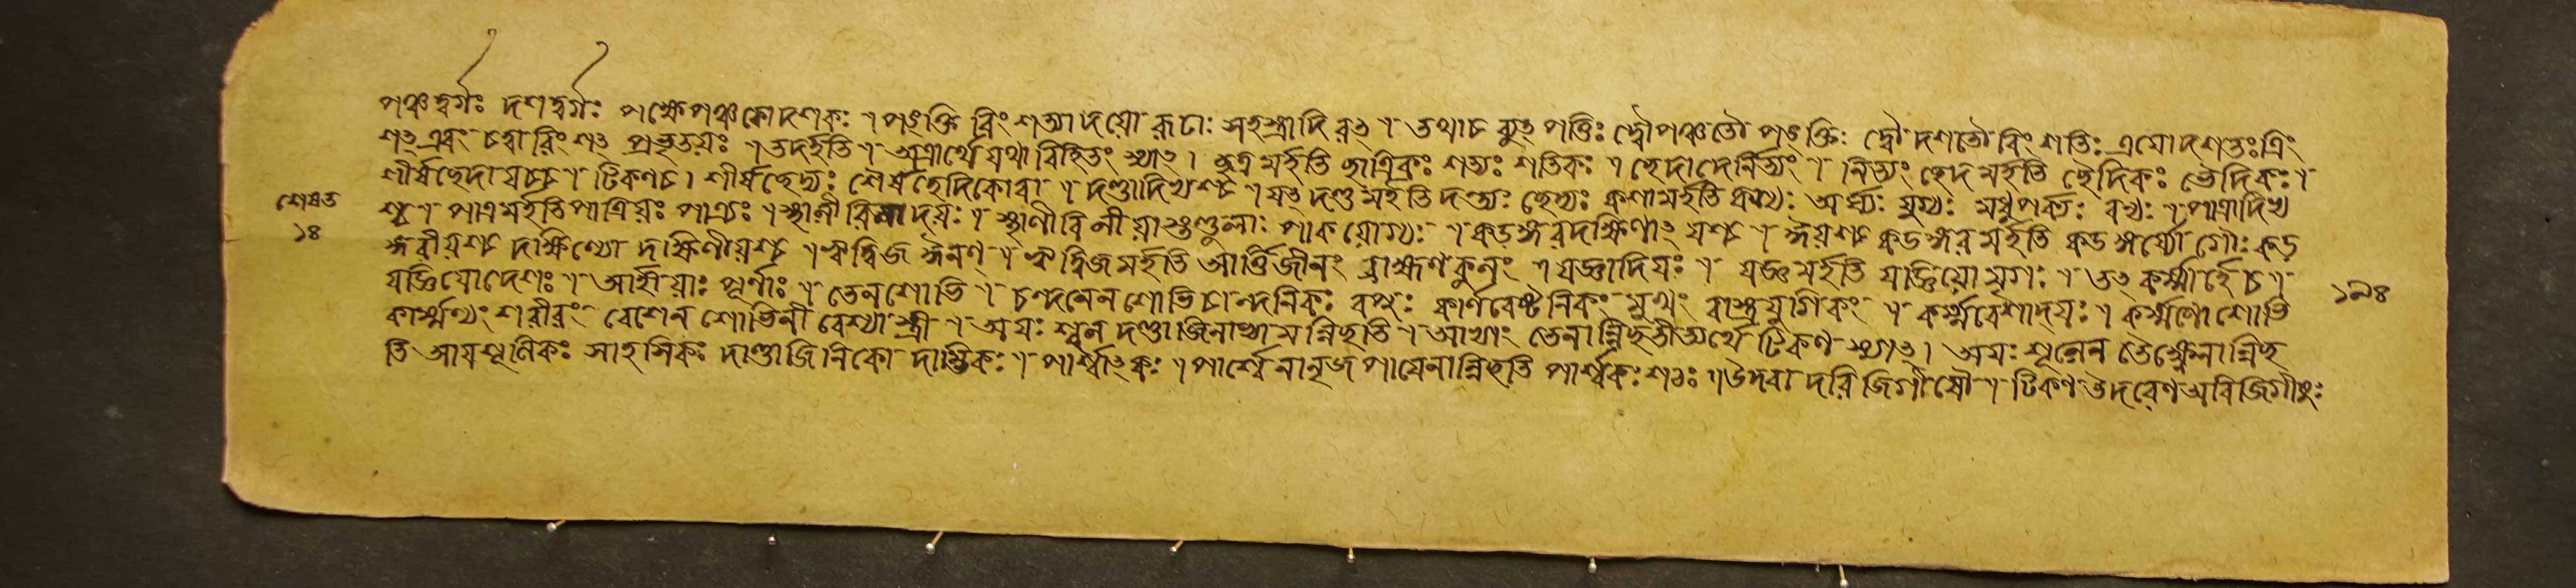 পঞ্চদ্বর্গঃ দশদ্বর্গঃ পক্ষেপঞ্চকোদশকঃ । পংক্তি বিংশত্যাদয়ো রূঢাঃ সহস্রাদি
শৎ এবং চত্বারিংশৎ প্রভৃতয়ঃ । তদর্হতি । অত্রার্থে যথা বিহিতং স্যাৎ । ছত্র মর্হতি ছাত্রিকঃ শত্যঃ শতিকঃ । ছেদাদের্নিত্যং । নিত্যং ছেদ মর্হতি ছৈদিকঃ ভৈদিকঃ ।
শীর্ষছেদাদ্যচ্চ । টিকণচ । শীর্ষছেদ্যঃ শৈর্ষছেদিকোবা । দণ্ডাদিখশচ । যৎ দণ্ড মর্হতি দণ্ড্যঃ ছেদ্যঃ কশামর্হতি কশ্যঃ অর্ঘ্যঃ মধুপর্ক্যঃ বধ্যঃ । পাত্রাদিয
শ্চ । পাত্রমর্হতি পাত্রিয়ঃ পাত্র্যঃ । স্থালী বিলাদ্য়ঃ । স্থালীবিলীয়াস্তণ্ডুলাঃ পাক যোগ্যাঃ । কড়ঙ্গরদক্ষিণাৎ যশ্চ । ঈয়শ্চ কডঙ্গর মর্হতি কডঙ্গর্য্যো গৌঃ কড়
ঙ্গরীয়শ্চ দাক্ষিণ্যো দাক্ষিণীয়শ্চ । ঋত্বিজ ঈনণ্ । ঋত্বিজমর্হতি আর্ত্বিজীনং ব্রাহ্মণকুলং । যজ্ঞাদিয়ঃ । যজ্ঞমর্হতি যজ্ঞিয়ো । তৎ কর্ম্মার্হে চ ।
যজ্ঞিয়োদেশঃ । আর্হীয়াঃ পূর্ণাঃ । তেন শোভি । চন্দনেন শোভি চান্দনিকঃ বপুঃ কার্ণবেষ্টনিকং মুখং বাস্ত্রযুগিকং । কর্ম্মবেশাদ্যঃ । কর্ম্মণা শোভি
কার্ম্মণ্যং শরীরং বেশেন শোভিনী বেশ্যা স্ত্রী । অয়ঃ শূল দণ্ডাজিনাভ্যা মন্বিছতি । আভ্যাং তেনান্বিছতীত্যর্থে টিকণ স্যাৎ । অয়ঃ শূলেন তৈক্ষ্ণেনান্বিছ
তি আয়শূলিকঃ সাহসিকঃ দাণ্ডাজিনিকো দাম্ভিকঃ । পার্শ্বাৎকঃ । পার্শ্বেনানৃজূপায়েনান্বিছতি পার্শ্বকঃ শঠঃ । উদরাদবিজিগীষৌ । টিকণ উদরেণ অবিজিগীষুঃ
শেষত
১৪
১৯৪